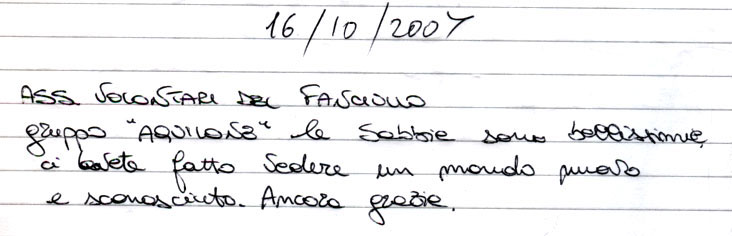 16/10/2007
ASS. VOLONTARI DEL FANCIULLO
gruppo "AQUILONE" le Sabbie sono bellissime,
ci avete fatto vedere un mondo nuovo
e sconosciuto. Ancora grazie.